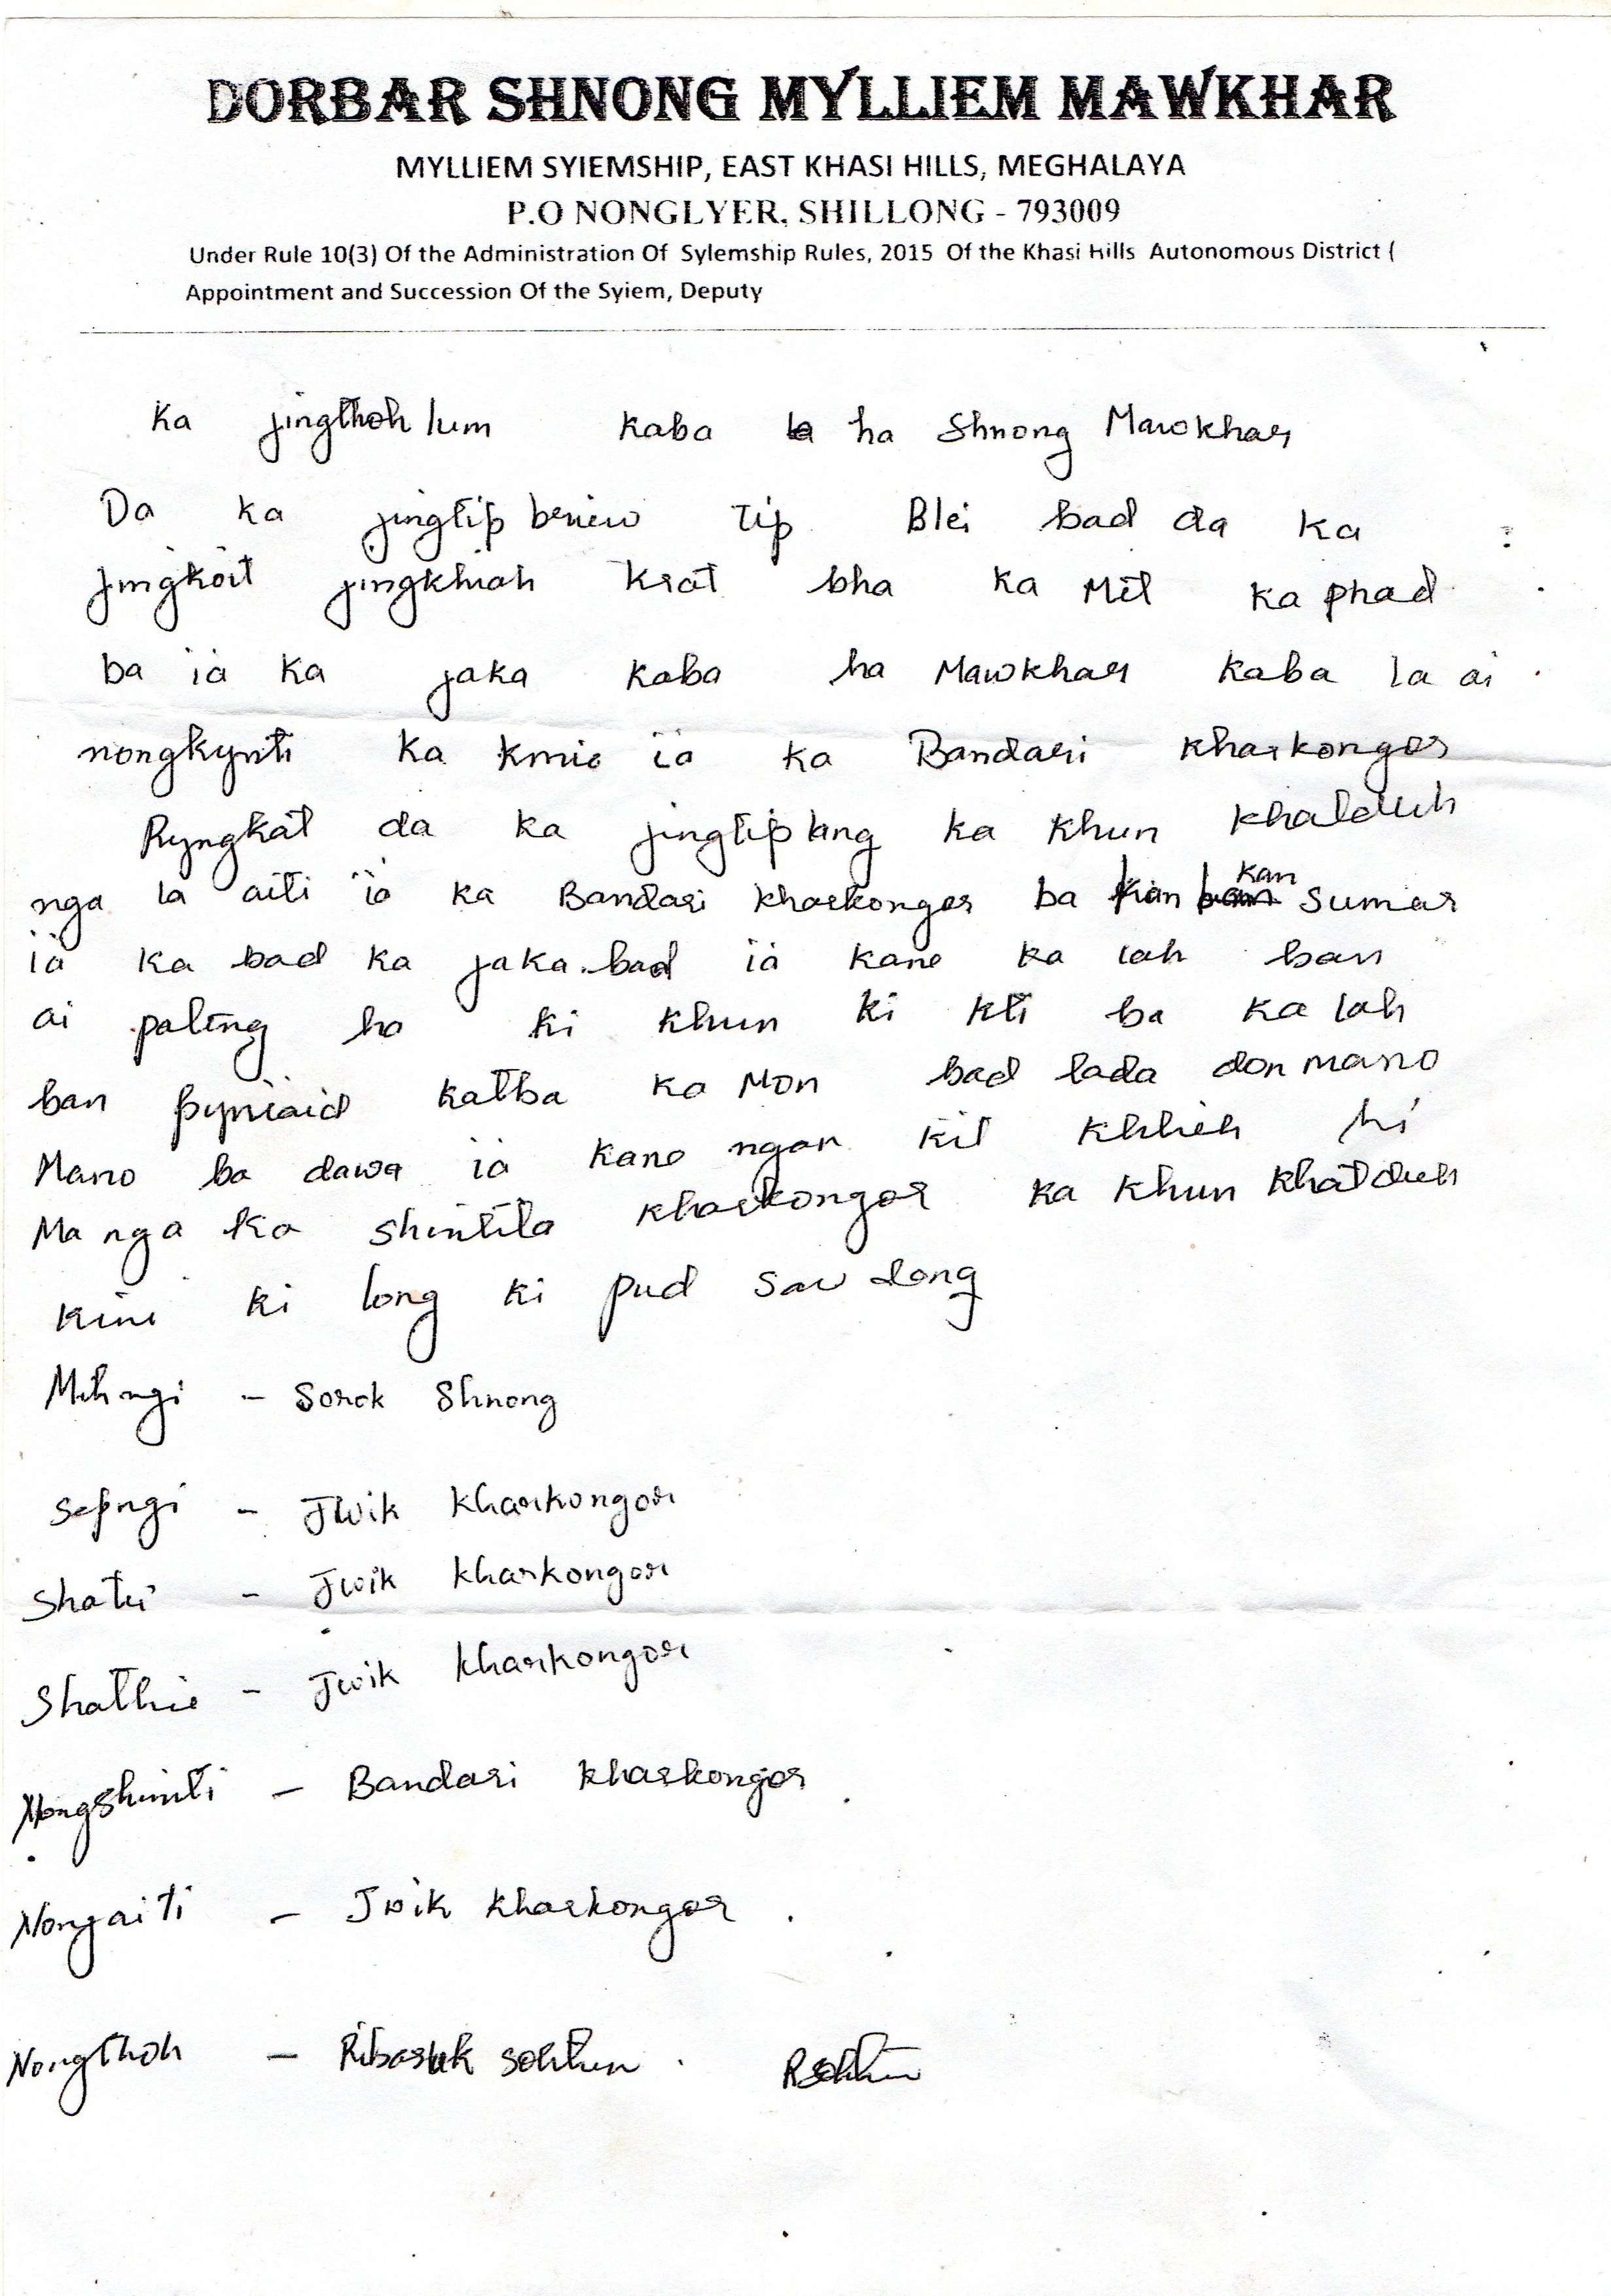 DORBAR SHNONG MYLLIEM MAWKHAR
MYLLIEM SYIEMSHIP, EAST KHASI HILLS, MEGHALAYA
P.O NONGLYER, SHILLONG - 793009
Under Rule 10(3) Of the Administration Of Sylemship Rules, 2015 Of the Khasi Hills Autonomous District (
Appointment and Succession Of the Syiem, Deputy
Ka jingthoh lum kaba ha Shnong Mawkhar
Da ka jingtip briew Tip Blei bad da ka
jingkoit jingkhiah krat bha ka Met ka phad
ba ia ka jaka kaba ha Mawkhar kaba la ai
nongkynti ka kmie ia ka Bandari kharkongor
Ryngkat da ka jingtip lang ka khun khatduh
nga la aiti ia ka Bandari kharkongor ba kan sumar
ia ka bad ka jaka bad ia kane ka lah ban
ai pateng ha ki khun ki kti ba ka lah
ban pyniaid katba ka Mon bad lada don mano
Mano ba dawa ia kane ngan kit khlieh hi
Ma nga ka shintila kharkongor ka khun khatduh
kine ki long ki pud saw dong
Mihngi - Sorok Shnong
Sepngi - Jwik kharkongor
Shatei - Jwik kharkongor
Shathie - Jwik kharkongor
Nongshimti - Bandari kharkongor
Nongaiti - Jwik kharkongor
Nongthoh - Ribasuk sohtun . Rsohtun